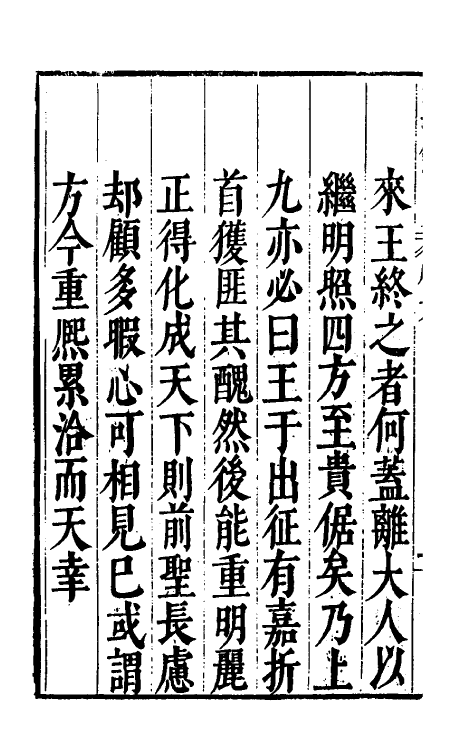 來王終之者何蓋離大人以
繼明照四方至貴倨矣乃上
九亦必曰王于出征有嘉折
首獲匪其醜然後能重明麗
正得化成天下則前聖長慮
却顧多暇心可相見已或謂
方今重熈累洽而天幸